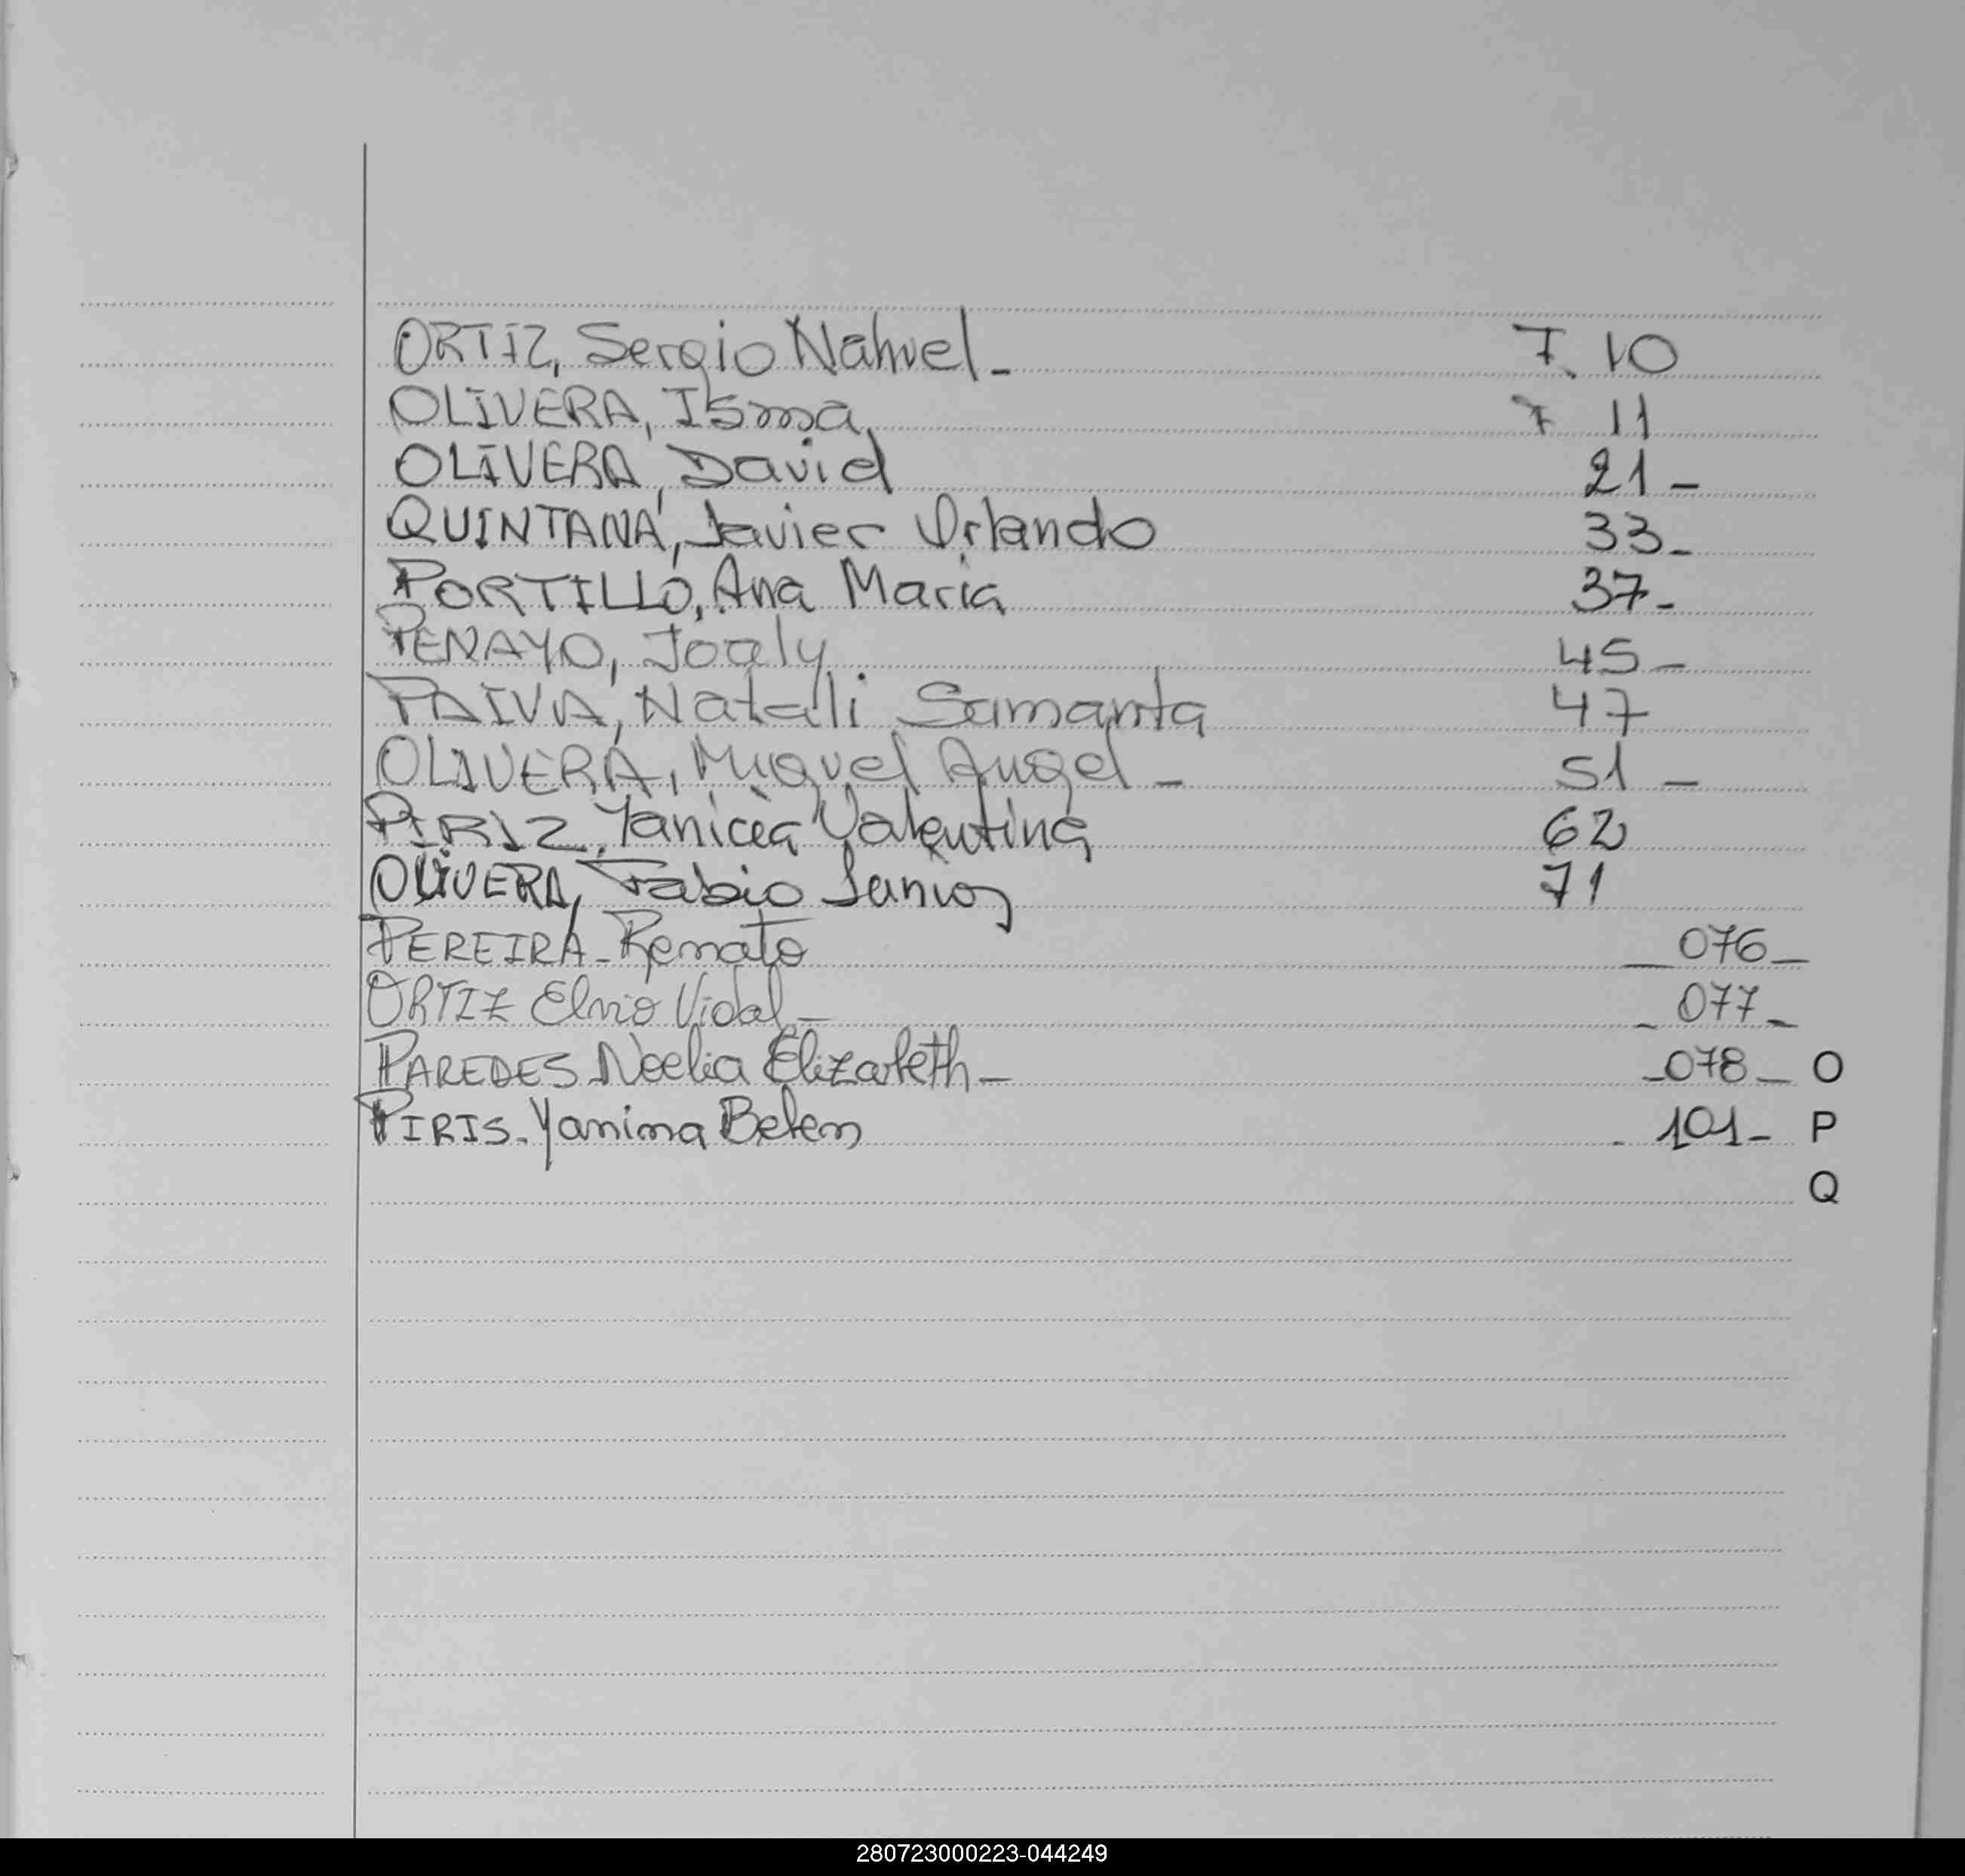 ORTIZ, Sergio Nahuel_ F. 10
OLIVERA, Isma F 11
OLIVERA, David 21_
QUINTANA, Javier Orlando 33_
PORTILLO, Ana Maria 37_
PENAYO, Joaly 45_
PAIVA, Natali Samanta 47
OLIVERA, Miguel Angel_ 51_
PIRIZ, Yanicea Valentina 62
OLIVERA, Fabio Junior 71
PEREIRA_Renato _076_
ORTIZ Elvio Vidal_ _077_
PAREDES Noelia Elizabeth_ _078_ O
PIRIS_Yanina Belen _101_ P
Q
280723000223-044249